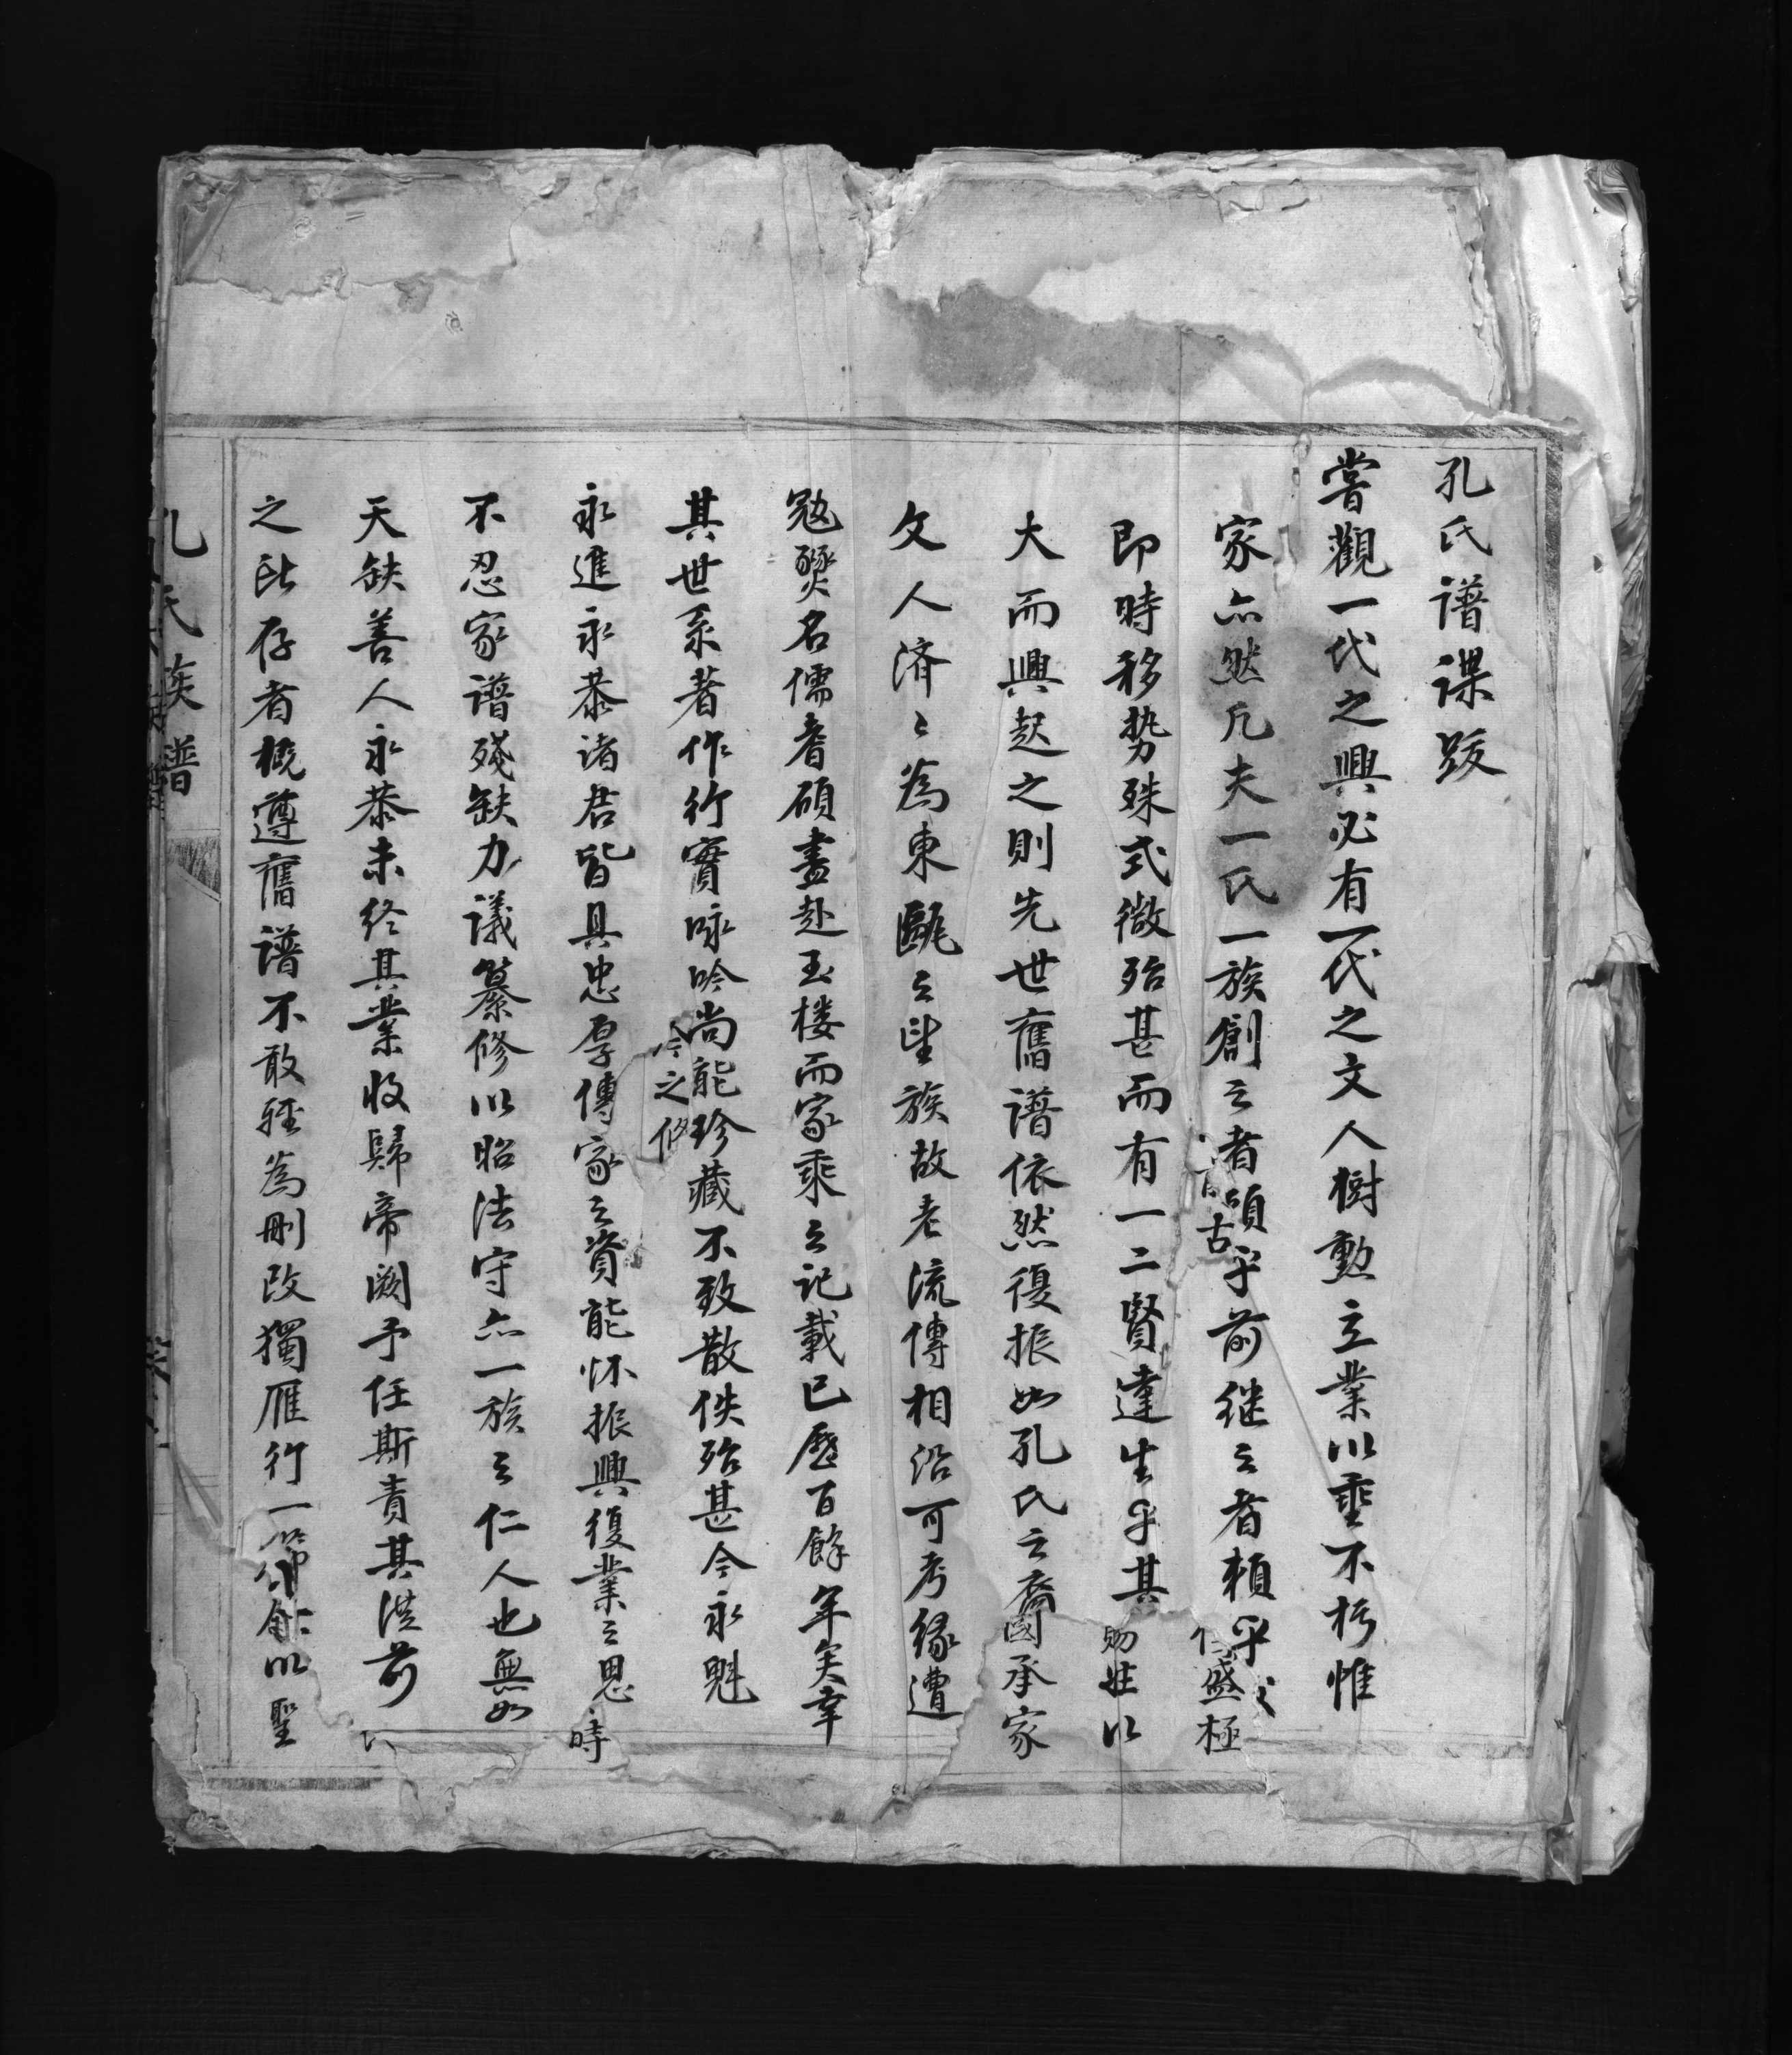 孔氏譜諜跋
嘗觀一代之興必有一代之文人樹勲立業以垂不朽惟
家亦然凡夫一氏一族創之者頭乎前继之者頼乎
即時移势殊式微殆甚而有一二賢達生乎其
大而興起之則先世舊譜依然復振如孔氏之裔
文人済々為東甌之望族故老流傳相沿可考緣遭
寇燹名儒耆碩盡赴玉楼而家乘之記載已歷百餘年矣幸
其世系著作行實咏吟尚能珍藏不致散佚殆甚今永魁
永進永恭诸君皆具忠厚傳家之資能怀振興復業之思
不忍家譜殘缺力議纂修以昭法守亦一族之仁人也無如
天缺善人永恭未终其業收歸帝闕予任斯責其洪前
之所存者概遵舊譜不敢輕為刪改獨雁行一
以聖
古
盛極
以
國承家
今之修
時
孔氏族譜